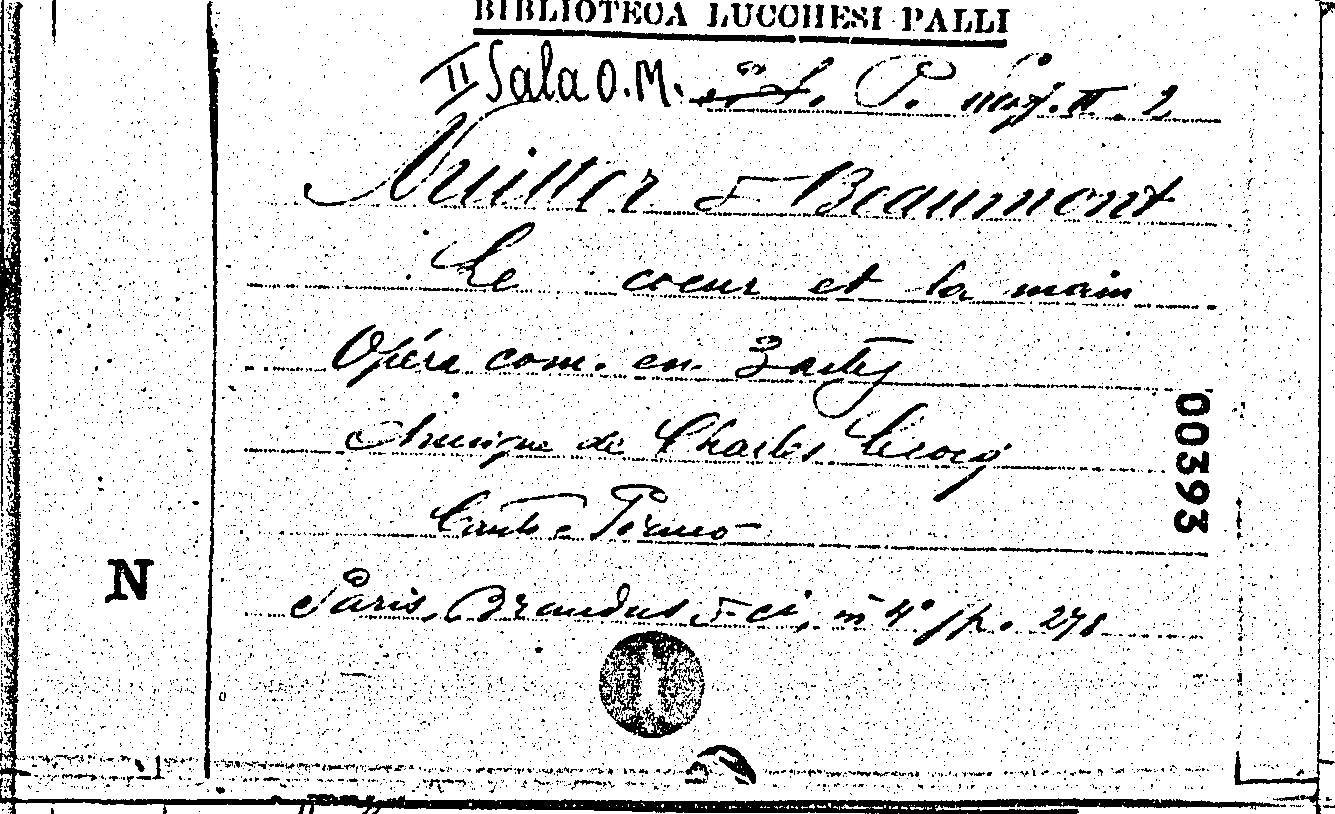 BIBLIOTECA LUCCHESI PALLI
II Sala O.M. L. P. II. 2
Nuitter & Beaumont
Le coeur et la main
Opéra com. en 3 actes
Musique de Charles Lecocq
Canto e Piano
Paris, Brandus & Ci, in 4° pp. 278
00393
N